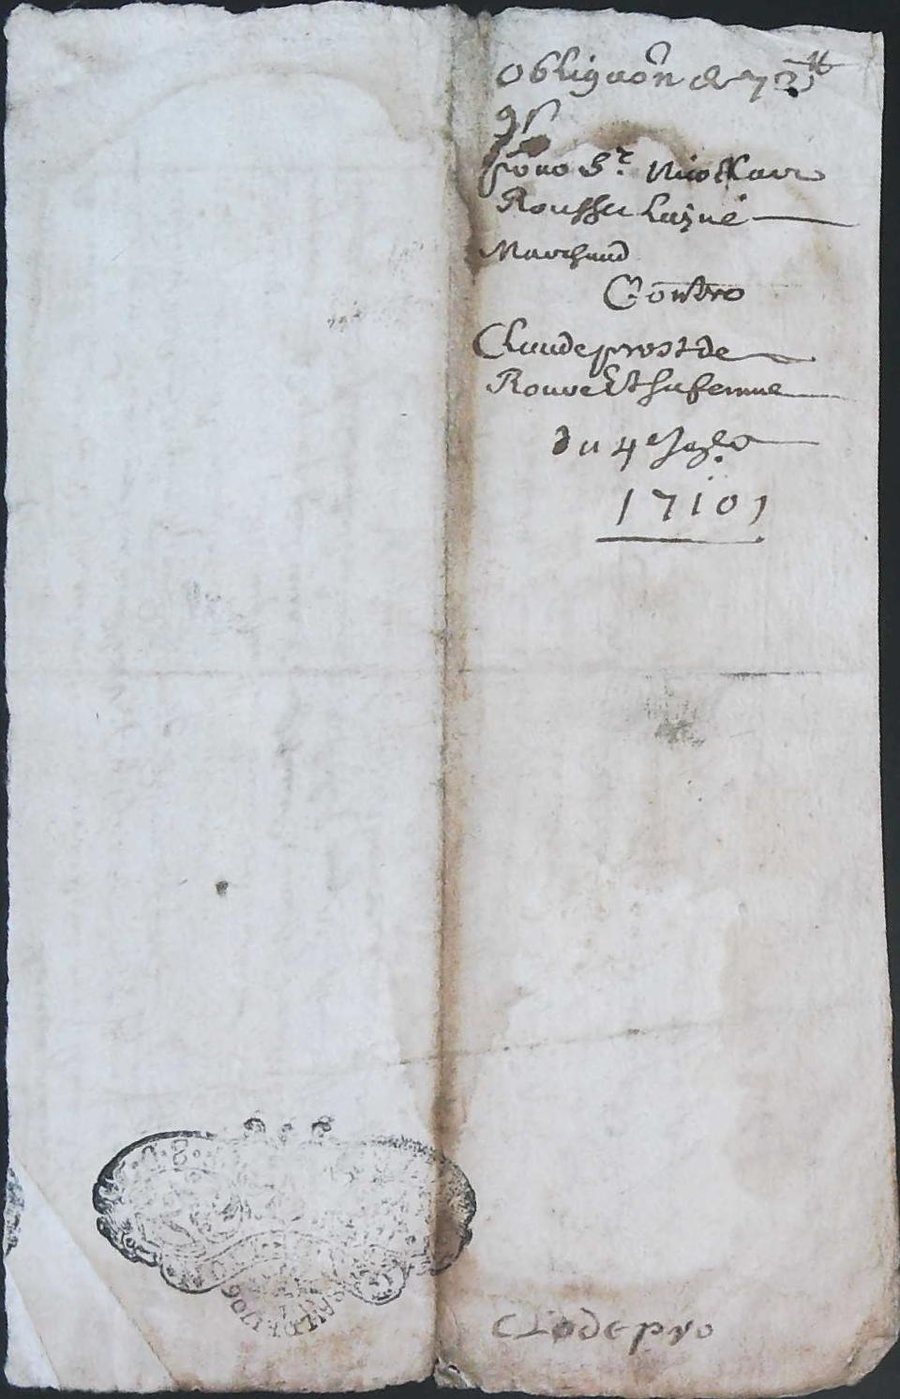 obligãon de 72 ₶
9 s
pour Sr. Nicollas
Roussel Layné
Marchand
Contre
Claude prost de
Rouve Et sa femme
du 4e
1710
Clode pro